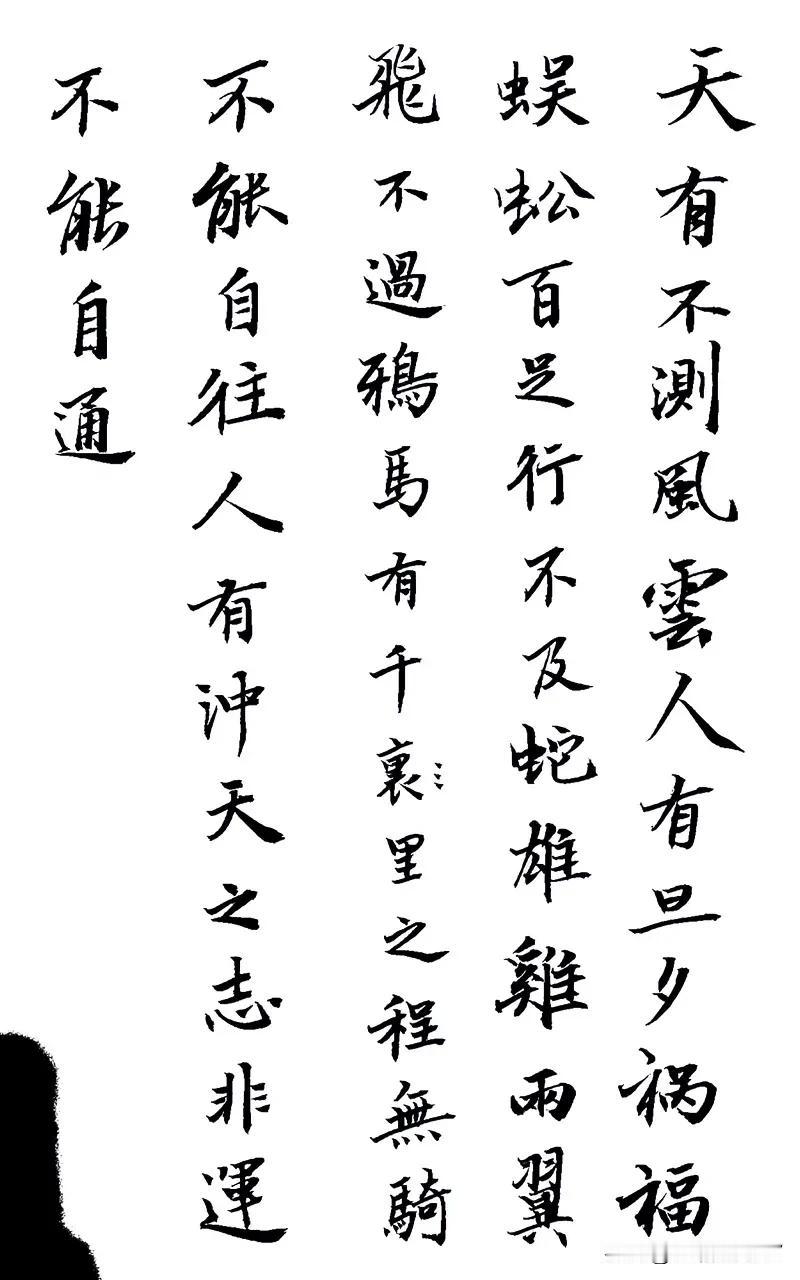 天有不測風雲人有旦夕祸福
蜈蚣百足行不及蛇雄雞兩翼
飛不過鴉馬有千裏里之程無騎
不能自往人有沖天之志非運
不能自通